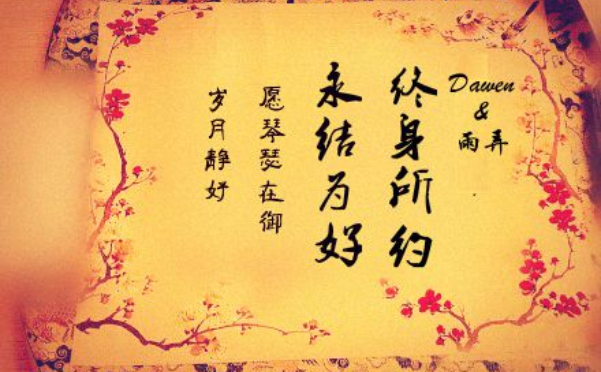 Dawen
&
雨弄
终身所约
永结为好
愿琴瑟在御
岁月静好